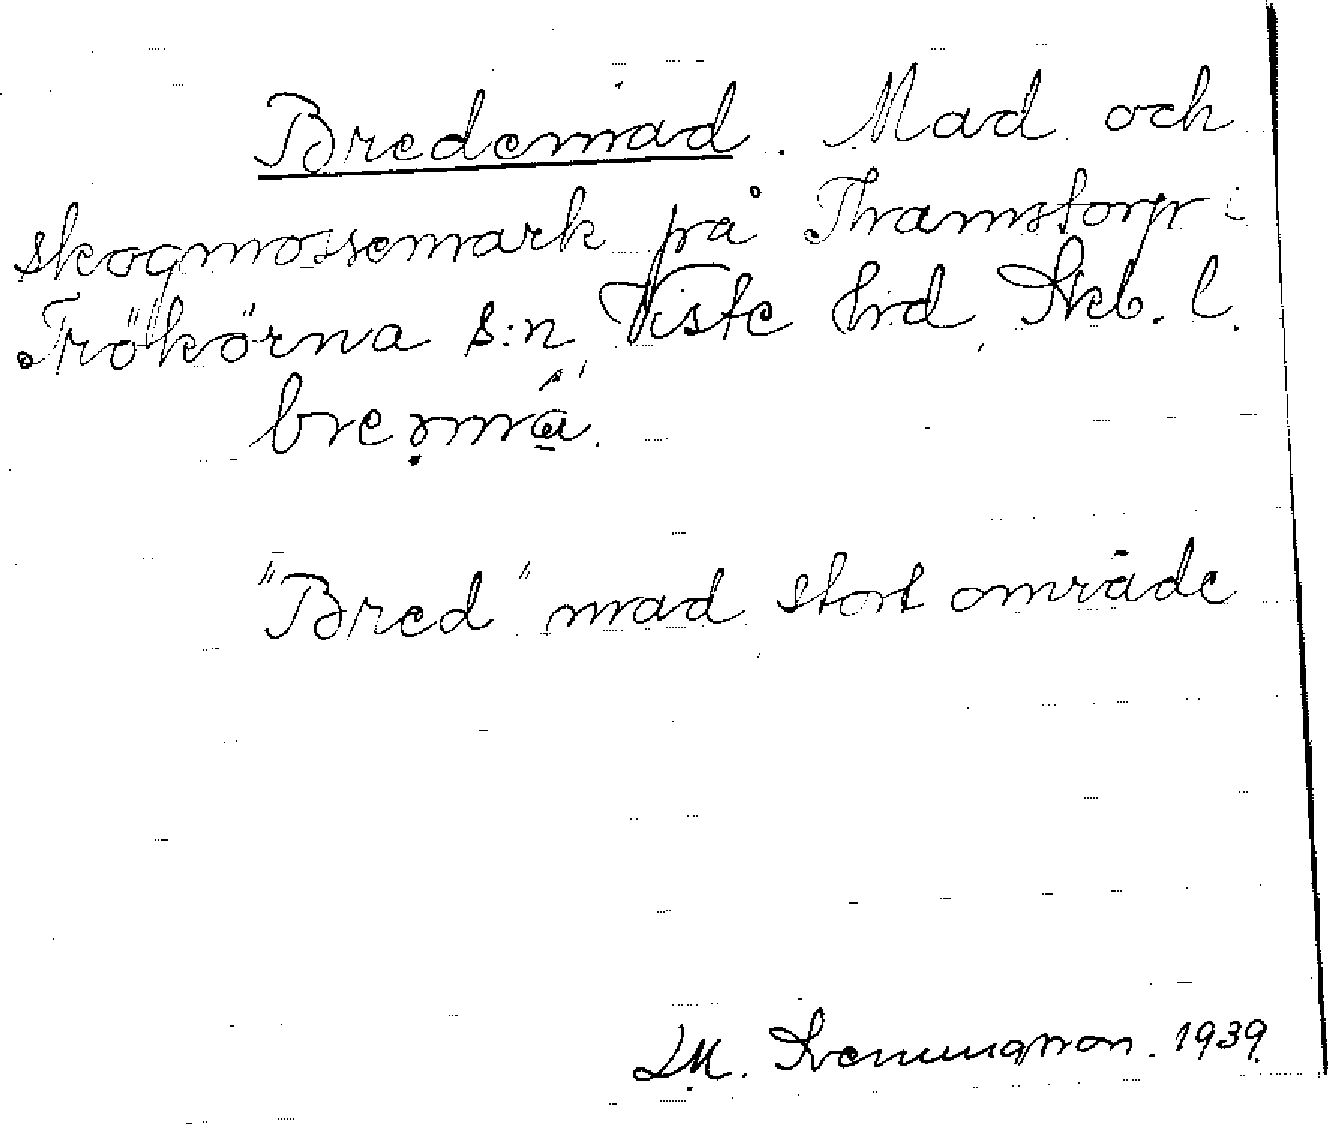 Bredemad. Mad och
skogmossemark på Thamstorp i
Trökörna s:n, Viste hrd, Skb. l.

"Bred" mad stort område
1939.